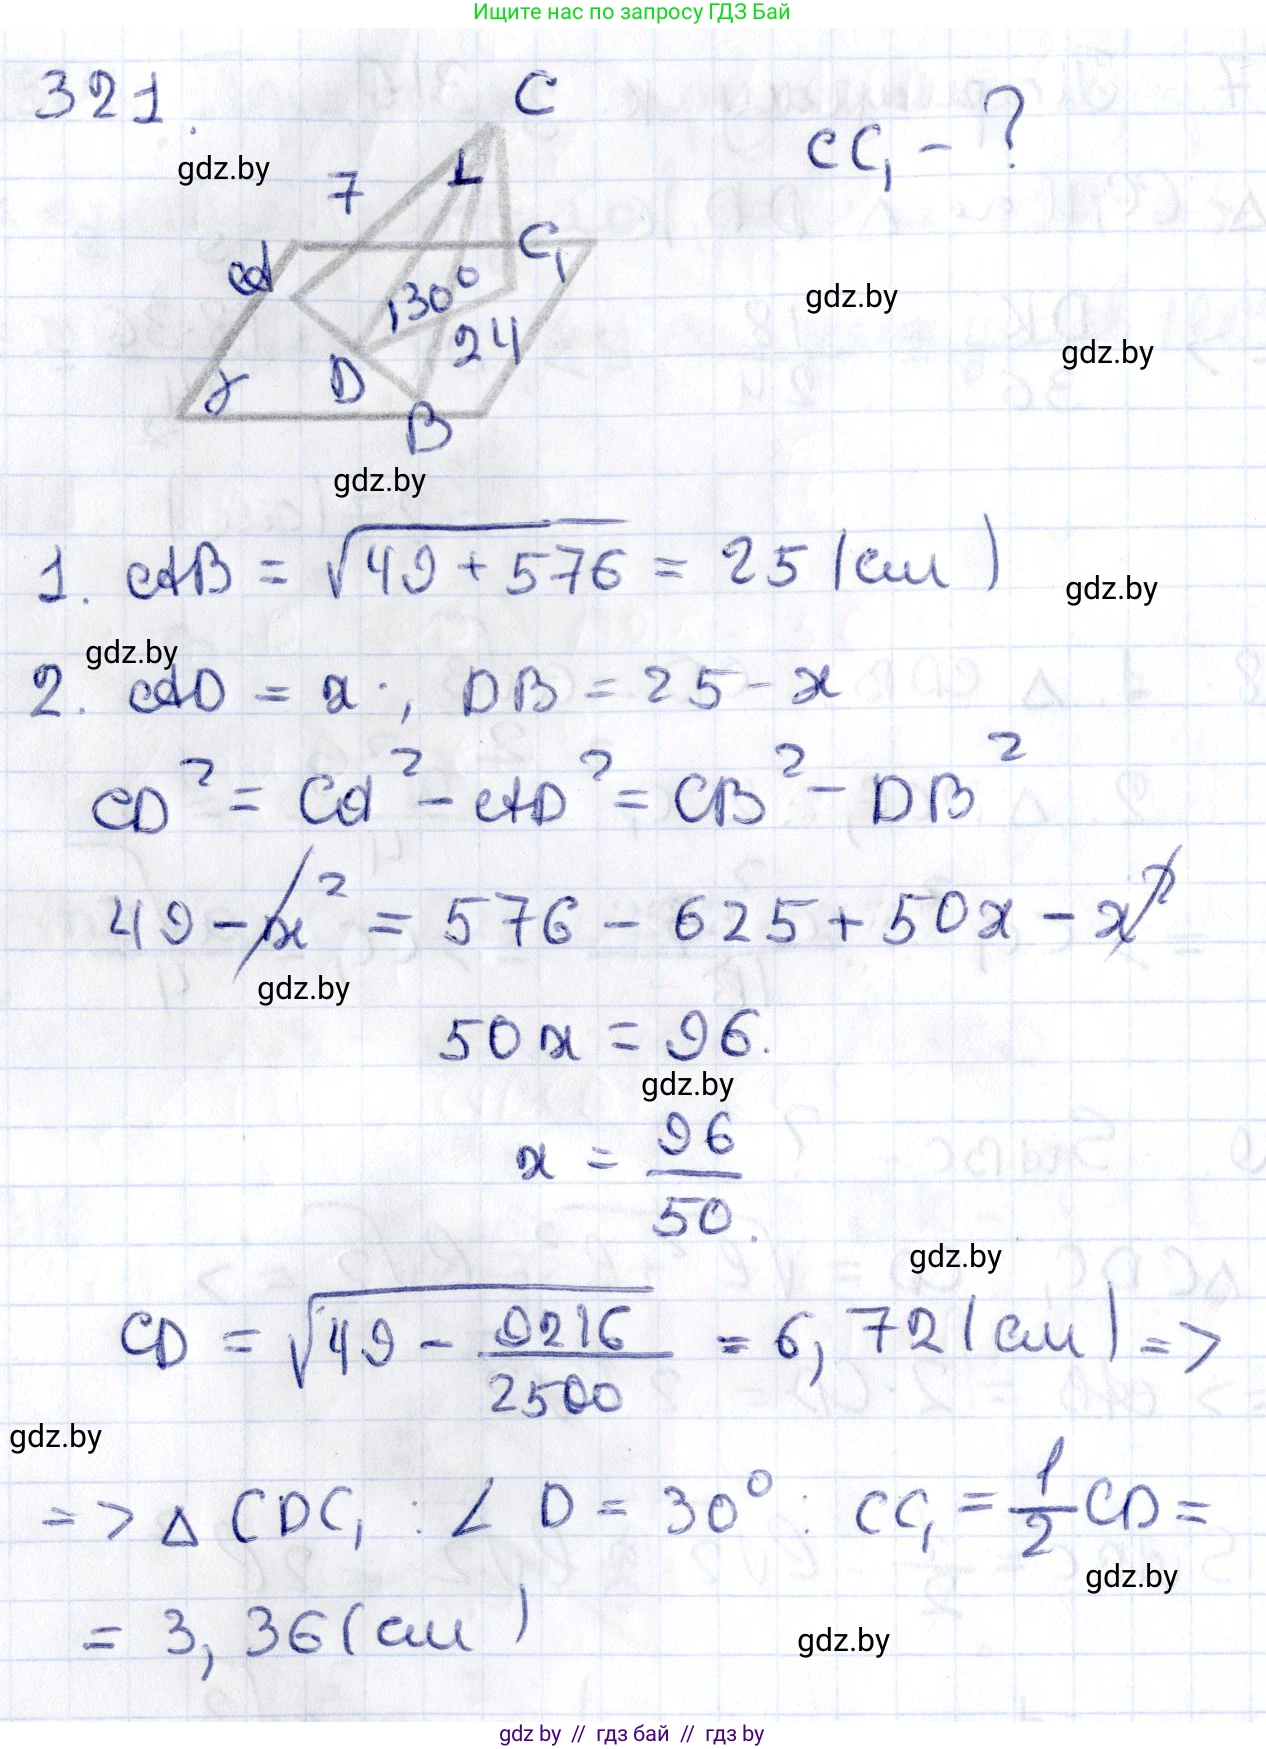 Ищите нас по запросу ГДЗ Бай
321.
C
CC₁ - ?
gdz.by
7
A
C₁
130°
24
gdz.by
gdz.by
γ
D
B
gdz.by
1. AB = √(49 + 576) = 25 (см)
gdz.by
gdz.by
2. AD = x ; DB = 25 - x
CD² = CA² - AD² = CB² - DB²
49 - x² = 576 - 625 + 50x - x²
gdz.by
50x = 96.
gdz.by
x = 96/50.
gdz.by
CD = √(49 - 9216/2500) = 6,72 (см) =>
gdz.by
=> △ CDC₁ : ∠ D = 30° : CC₁ = 1/2 CD =
gdz.by
= 3,36 (см)
gdz.by
gdz by // гдз бай // гдз by